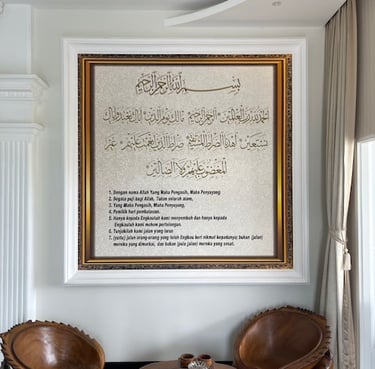 بسم الله الرحمن الرحيم
الحمد لله رب العالمين الرحمن الرحيم مالك يوم الدين إياك نعبد وإياك
نستعين اهدنا الصراط المستقيم صراط الذين أنعمت عليهم غير
المغضوب عليهم ولا الضالين
1. Dengan nama Allah Yang Maha Pengasih, Maha Penyayang
2. Segala puji bagi Allah, Tuhan seluruh alam,
3. Yang Maha Pengasih, Maha Penyayang,
4. Pemilik hari pembalasan.
5. Hanya kepada Engkaulah kami menyembah dan hanya kepada
Engkaulah kami mohon pertolongan.
6. Tunjukilah kami jalan yang lurus
7. (yaitu) jalan orang-orang yang telah Engkau beri nikmat kepadanya; bukan (jalan)
mereka yang dimurkai, dan bukan (pula jalan) mereka yang sesat.